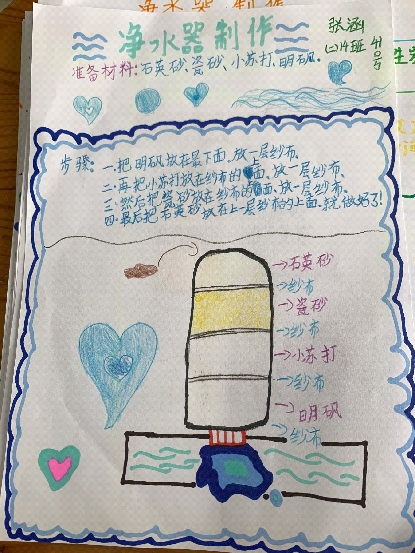 净水器制作
张涵
(二)14班 41号
准备材料:石英砂、瓷砂、小苏打、明矾。
步骤:一.把明矾放在最下面,放一层纱布、
二.再把小苏打放在纱布的上面、放一层纱布、
三.然后把瓷砂放在纱布的上面、放一层纱布、
四.最后把石英砂放在上一层纱布的上面、就做好了!
石英砂
纱布
瓷砂
纱布
小苏打
纱布
明矾
纱布